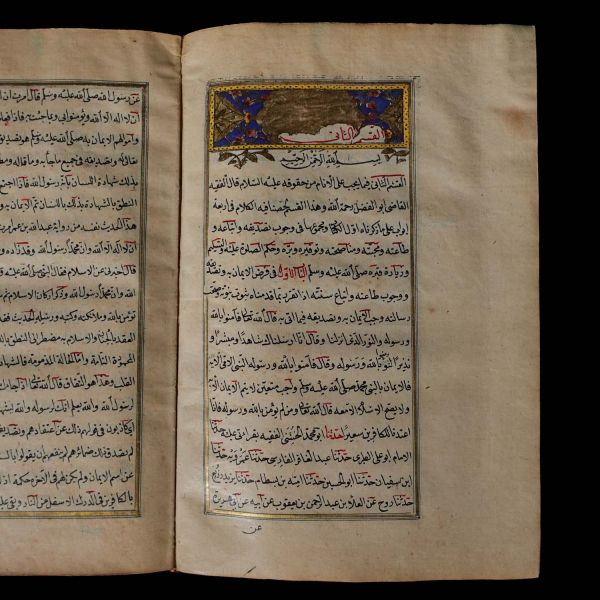 القسم الثانى
بسم الله الرحمن الرحيم
القسم الثانى فيما يجب على الانام من حقوقه عليه السلام قال الفقيه
القاضى ابو الفضل رحمة الله وهذا القسم لخصنا فيه الكلام فى اربعة
ابواب على ما ذكرناه اول الكتاب ومجموعها فى وجوب تصديقه واتباعه و
طاعته ومحبته ومناصحته وتوقيره وبره وحكم الصلوة عليه والتسليم
وزيارة قبره صلى الله عليه وسلم الباب الاول فى فرض الايمان به وتصديقه
ووجوب طاعته واتباع سنته اذا تقرر بما قدمناه ثبوت نبوته وصحة
رسالته وجب الايمان به وتصديقه فيما اتى به قال الله تعالى فآمنوا بالله
ورسوله والنور الذى انزلنا وقال انا ارسلناك شاهدا ومبشرا و
نذيرا لتؤمنوا بالله ورسوله وقال فآمنوا بالله ورسوله النبى الامى الاية
فالايمان بالنبى محمد صلى الله عليه وسلم واجب متعين لا يتم الايمان الا به
ولا يصح الاسلام الا معه قال الله تعالى ومن لم يؤمن بالله ورسوله فانا
اعتدنا للكافرين سعيرا حدثنا ابو محمد الخشنى الفقيه بقراءتى عليه حدثنا
الامام ابو على الطبرى حدثنا عبد الغافر الفارسى حدثنا عمرويه حدثنا
ابن سفيان حدثنا ابو الحسين حدثنا امية بن بسطام حدثنا يزيد بن زريع
حدثنا روح عن العلاء بن عبد الرحمن بن يعقوب عن ابيه عن ابى هريرة
عن
عن رسول الله صلى الله عليه وسلم قال امرت ان
ان لا اله الا الله ويؤمنوا بى وبما جئت به فاذا فعلوا
واموالهم الايمان به صلى الله عليه وسلم هو تصديق
وتصديقه فى جميع ما جاء به وما قاله
بذلك شهادة اللسان بانه رسول الله فاذا اجتمع
النطق بالشهادة بذلك باللسان تم الايمان به
هذا الحديث نفسه من رواية عبد الله بن عمر امرت
ان لا اله الا الله وان محمدا رسول الله وقد زاده
قال اخبرنى عن الاسلام فقال النبى صلى الله عليه
الله وان محمدا رسول الله وذكر اركان الاسلام ثم
تؤمن بالله وملائكته وكتبه ورسله الحديث فقد
العقد بالجنان والاسلام به مضطر الى النطق
التامة واما الحالة المذمومة فالشهادة
القلب وهذا هو النفاق قال الله تعالى اذا جاءك
لرسول الله والله يعلم انك لرسوله والله يشهد
كاذبون فى قولهم ذلك عن اعتقادهم وتصديقهم
عن اسم الايمان ولم يكن لهم فى الآخرة حكمه
بالكافرين فى الدرك الاسفل من النار وبقى عليهم